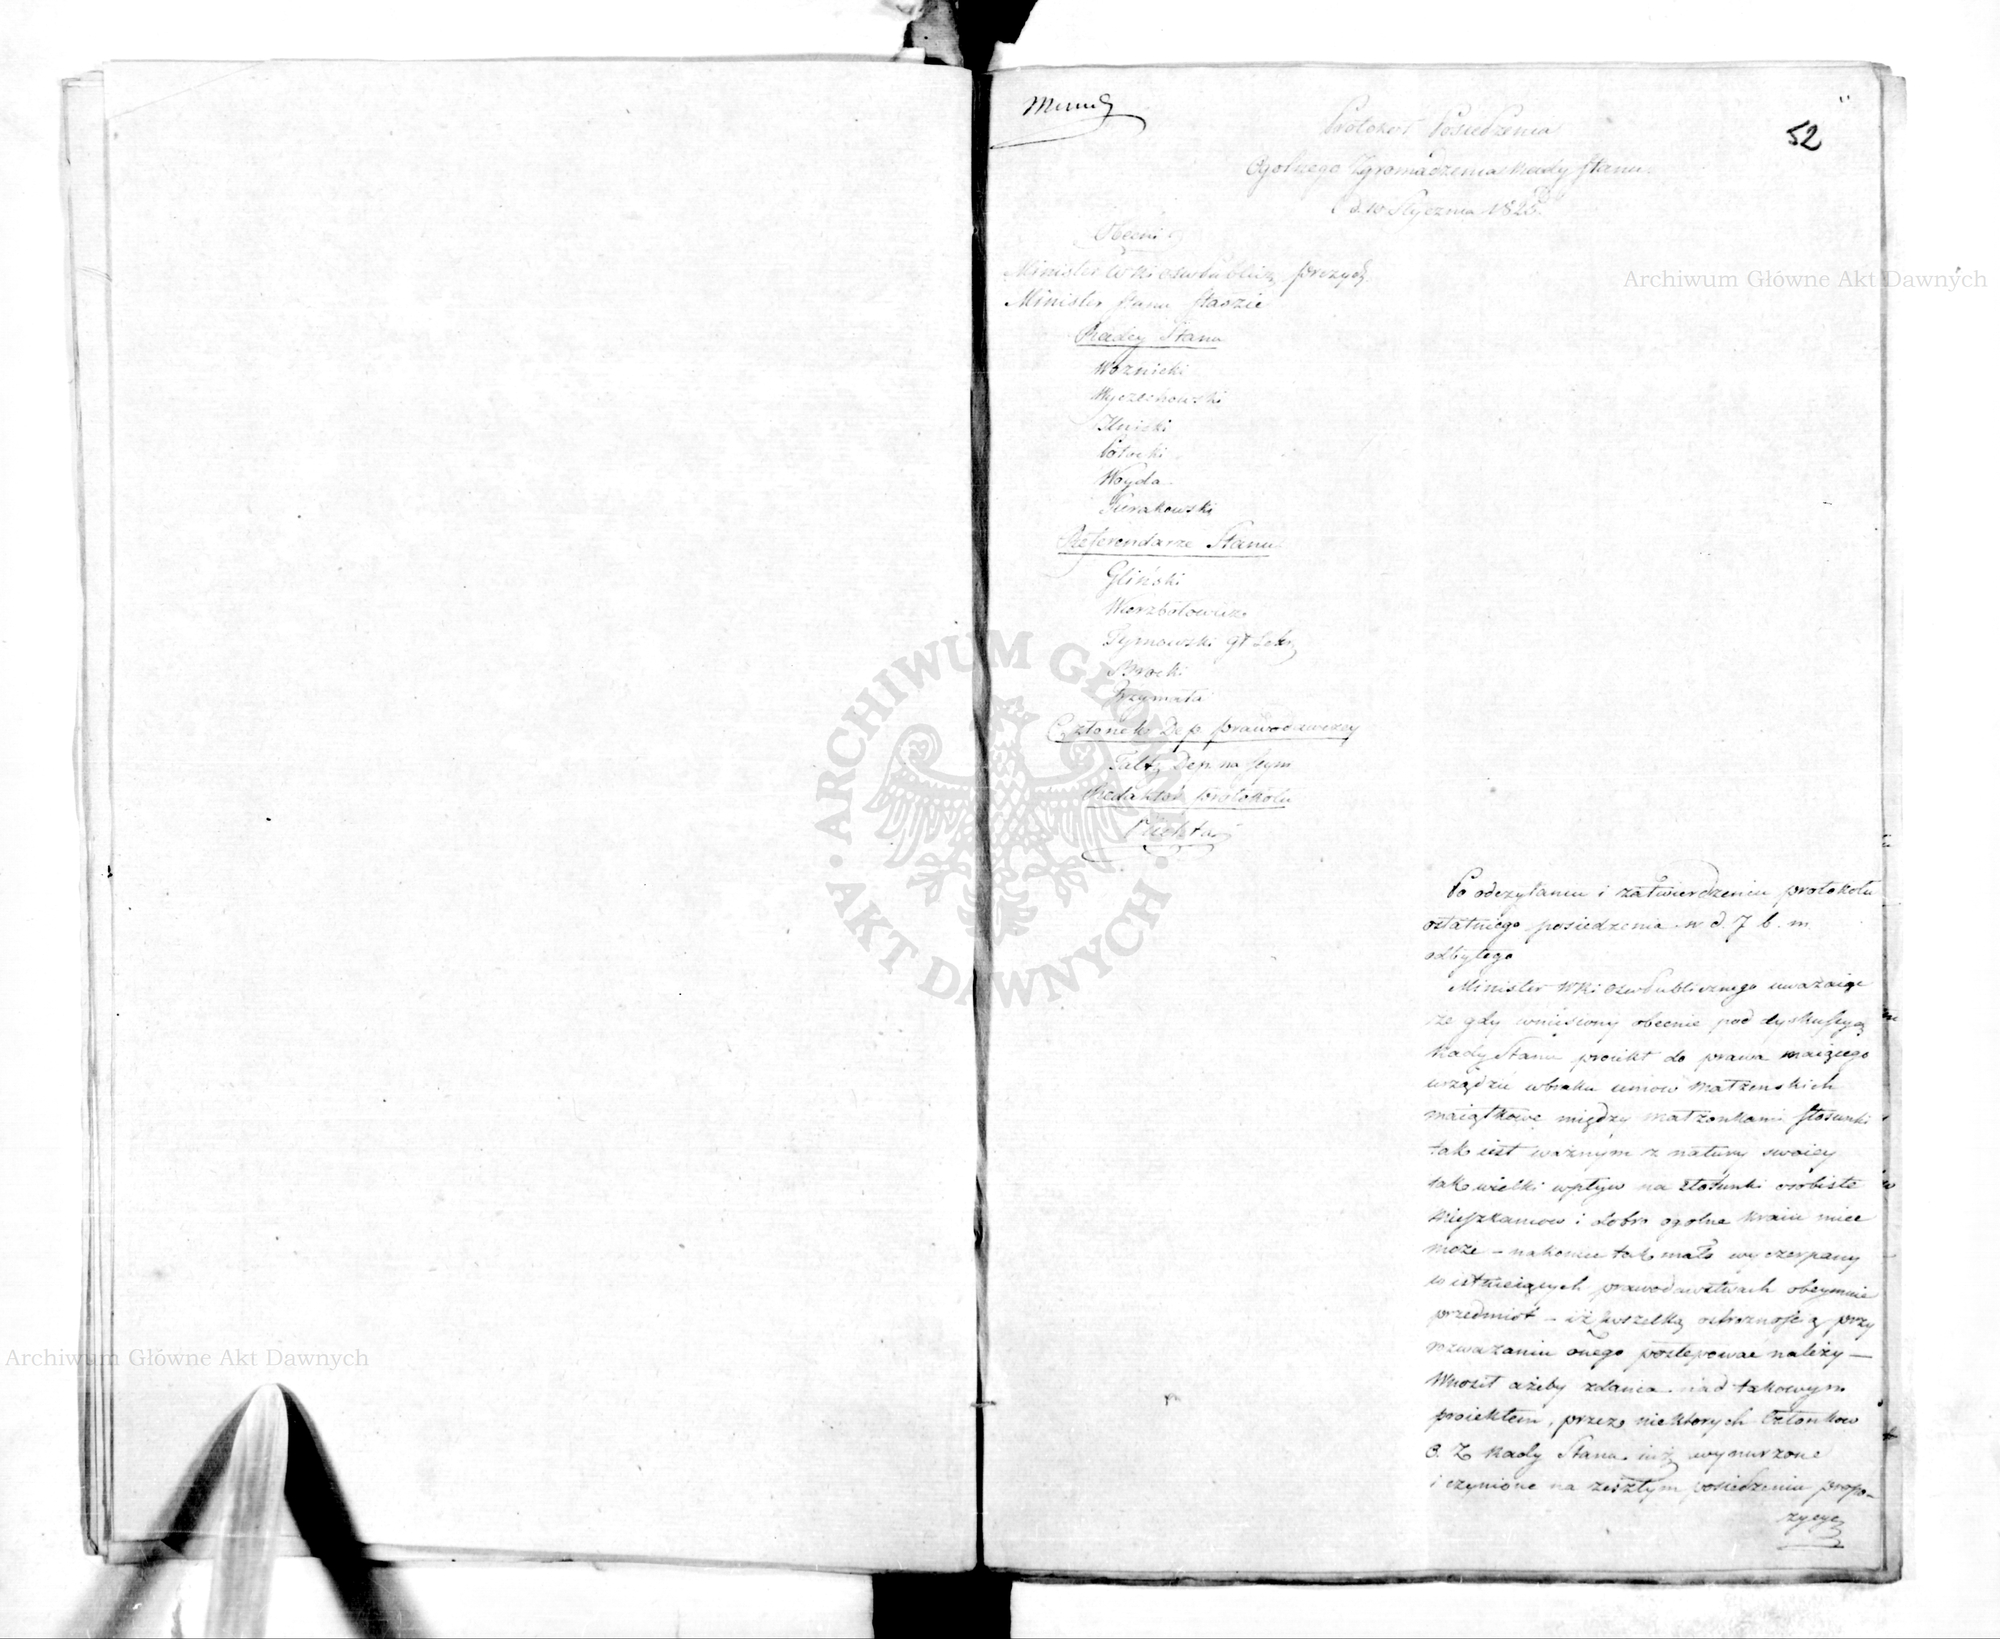 Mund
52
Protokół Posiedzenia
Ogolnego Zgromadzenia Rady Stanu
d. 10 Stycznia 1825.
Obecni
Minister WR i Ośw Publicz prezyd.
Minister Stanu Staszic
Radcy Stanu
Woznicki
Wyczechowski
Potocki
Woyda
Sierakowski
Referendarze Stanu
Gliński
Wierzbołowicz
Tymowski gł Sek
Brocki
Grzymała
Członek Dep. prawodawczey
Dep. na Seym
Redaktor protokołu
Puchta
Po odczytaniu i zatwierdzeniu protokołu
ostatniego posiedzenia w d. 7 b. m.
odbytego
Minister WR i Oświe Publicznego uważaiąc
że gdy wniesiony obecnie pod dyskussyą
Rady Stanu proiekt do prawa maiącego
urządzić w braku umów małżenskich
maiątkowe między małżonkami stosunki
tak iest ważnym z natury swoiey
tak wielki wpływ na stosunki osobiste
mieszkancow i dobro ogolne kraiu miec
może – nakoniec tak mało wyczerpany
w istnieiących prawodawstwach obeymuie
przedmiot – iż wszelką ostrożnością przy
rozważaniu onego postępować należy –
Wnosił ażeby zdania nad takowym
proiektem, przez niektorych Członkow
O. Z. Rady Stanu iuż wynurzone
i czynione na zeszłym posiedzeniu propo-
zycye
Archiwum Główne Akt Dawnych
Archiwum Główne Akt Dawnych
ARCHIWUM GŁÓWNE AKT DAWNYCH